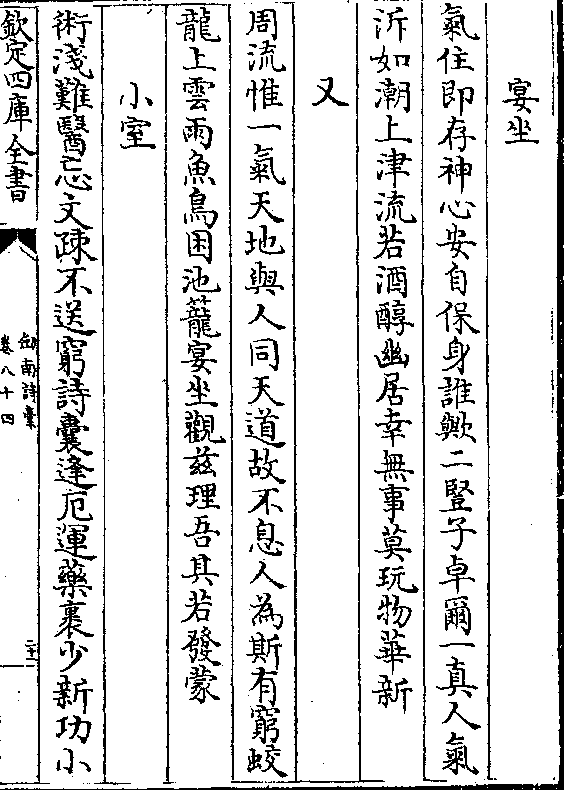 宴坐
氣住即存神心安自保身誰歟二豎子卓爾一真人氣
泝如潮上津流若酒醇幽居幸無事莫玩物華新
又
周流惟一氣天地與人同天道故不息人為斯有窮蛟
龍上雲雨魚鳥困池籠宴坐觀兹理吾其若發蒙
小室
術淺難醫忘文疎不送窮詩囊逢厄運藥裹少新功小
欽定四庫全書
劒南詩稾
卷八十四
二十三